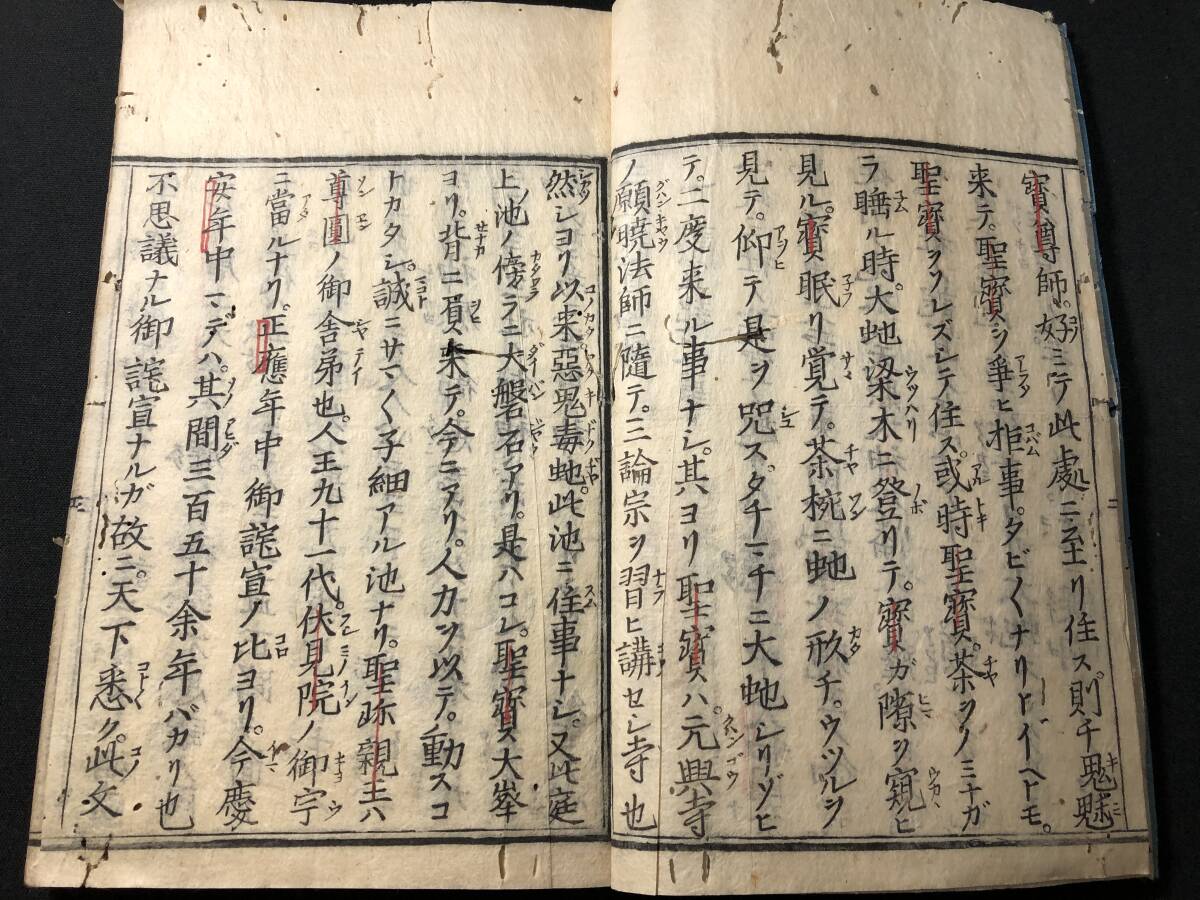 寳尊師。好ミテ此處ニ至リ住ス。則チ鬼魅
来テ。聖寳シ爭ヒ拒事。タビ〱ナリトイヘトモ。
聖寳ヲソレズシテ住ス。或時聖寳。茶ヲノミナガ
ラ睡ル時。大虵梁木ニ登リテ。寳ガ隙ヲ窺ヒ
見ル。寳眠リ覚テ。茶椀ニ虵ノ形チ。ウツルヲ
見テ。仰テ是ヲ咒ス。タチマチニ大虵シリゾヒ
テ。二度来ル事ナシ。其ヨリ聖寳ハ。元興寺
ノ願曉法師ニ隨テ。三論宗ヲ習ヒ講セシ寺也
然シヨリ以来惡鬼毒虵。此池ニ住事ナシ。又此庭
上ノ池ノ傍ラニ大磐石アリ。是ハコレ。聖寳ス大峯
ヨリ。背ニ屓ス来テ。今ニアリ。人力ヲ以テ。動スコ
トカタシ。誠ニサマ〱子細アル池ナリ。聖跡親王ハ
尊圓ノ御舎弟也。人王九十一代。伏見院ノ御宇
ニ當ルナリ。正應年中御詫宣ノ比ヨリ。今慶
安年中マデハ。其間三百五十余年バカリ也
不思議ナル御詫宣ナルガ故ニ。天下悉ク。此文